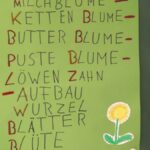 MILCHBLUME-
KETTEN BLUME-
BUTTER BLUME-
PUSTE BLUME-
LÖWEN ZAHN
-AUFBAU
WURZEL
BLÄTTER
BLÜTE